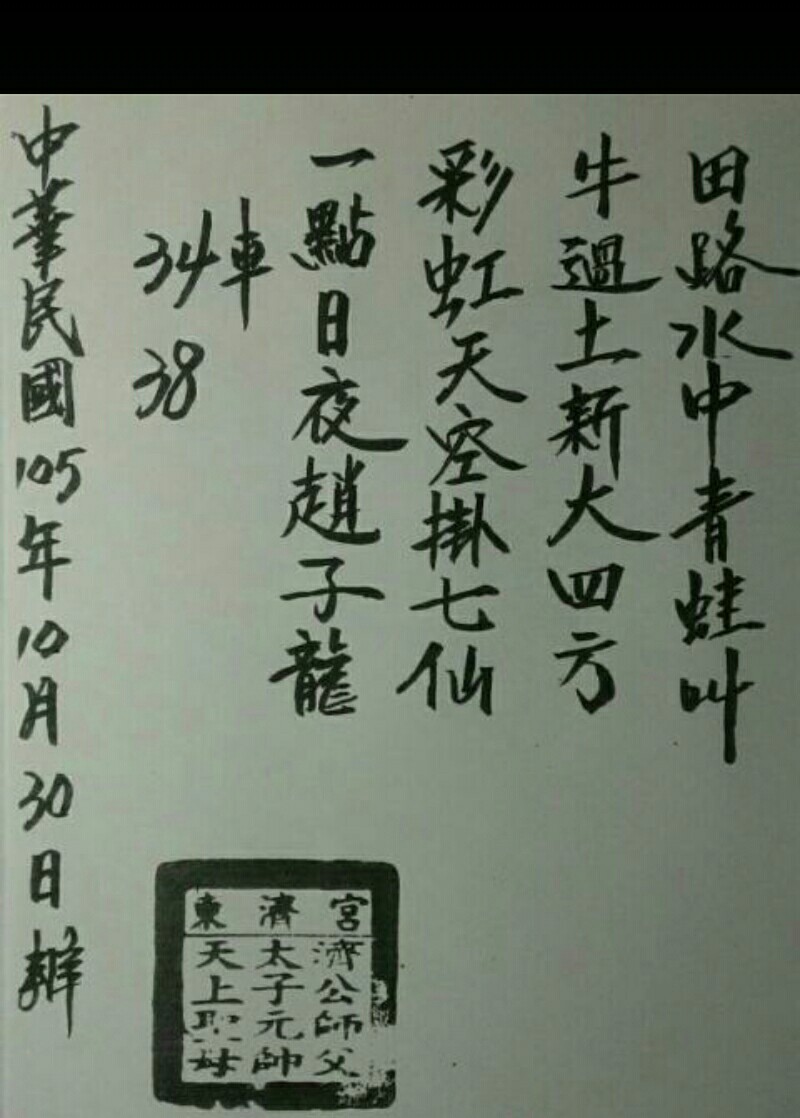 田路水中青蛙叫
牛過土新大四方
彩虹天空掛七仙
一點日夜趙子龍
車
34
38
中華民國105年10月30日辦
東濟宮
濟公師父
太子元帥
天上聖母